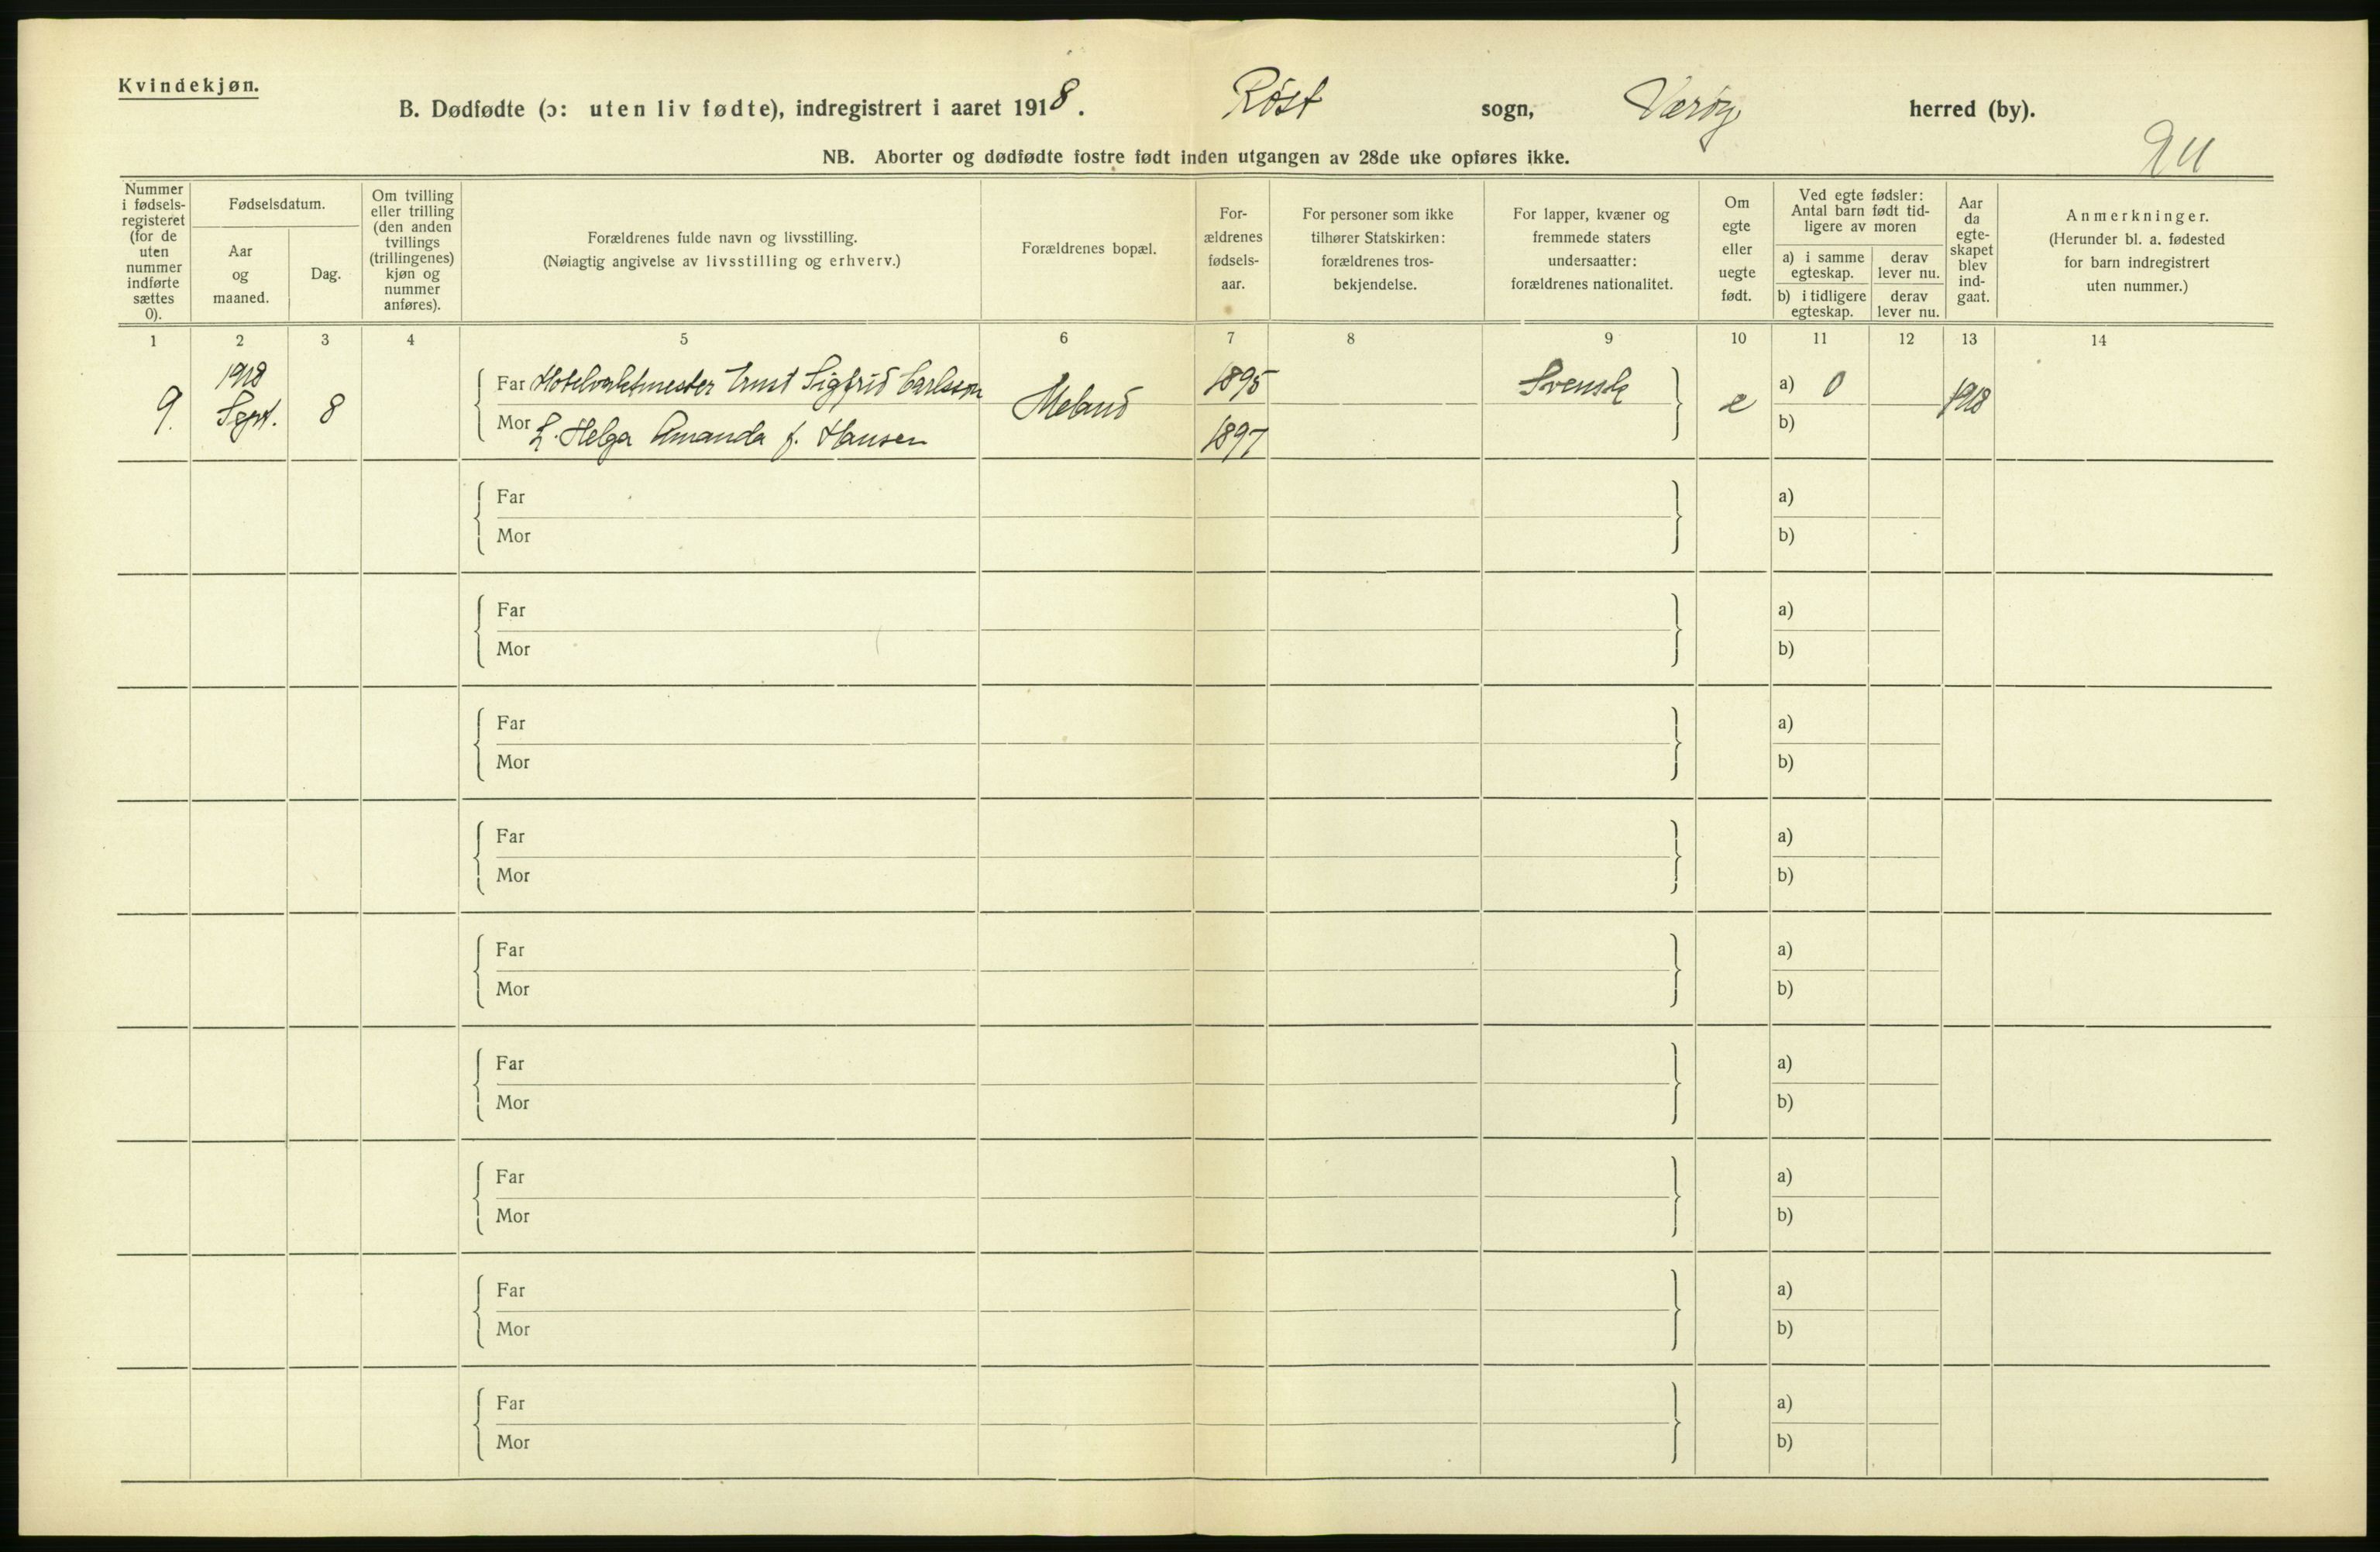 Kvindekjøn.
B. Dødfødte (ɔ: uten liv fødte), indregistrert i aaret 1918. Røst sogn, Værøy herred (by).
NB. Aborter og dødfødte fostre født inden utgangen av 28de uke opføres ikke.
Nummer
i fødsels-
registeret
(for de
uten
nummer
indførte
sættes
0).
Fødselsdatum.
Aar
og
maaned.
Dag.
Om tvilling
eller trilling
(den anden
tvillings
(trillingenes)
kjøn og
nummer
anføres).
Forældrenes fulde navn og livsstilling.
(Nøiagtig angivelse av livsstilling og erhverv.)
Forældrenes bopæl.
For-
ældrenes
fødsels-
aar.
For personer som ikke
tilhører Statskirken:
forældrenes tros-
bekjendelse.
For lapper, kvæner og
fremmede staters
undersaatter:
forældrenes nationalitet.
Om
egte
eller
uegte
født.
Ved egte fødsler:
Antal barn født tid-
ligere av moren
a) i samme
egteskap.
derav
lever nu.
b) i tidligere
egteskap.
derav
lever nu.
Aar
da
egte-
skapet
blev
ind-
gaat.
Anmerkninger.
(Herunder bl. a. fødested
for barn indregistrert
uten nummer.)
1 2 3 4 5 6 7 8 9 10 11 12 13 14
9.
1918
Sept.
8
Far Ernst Sigfrid Carlsson
Mor H. Helga Amanda f. Hansen
1895
1897
Svensk
e
a) 0
b)
1918
Far
Mor
a)
b)
Far
Mor
a)
b)
Far
Mor
a)
b)
Far
Mor
a)
b)
Far
Mor
a)
b)
Far
Mor
a)
b)
Far
Mor
a)
b)
Far
Mor
a)
b)
Far
Mor
a)
b)